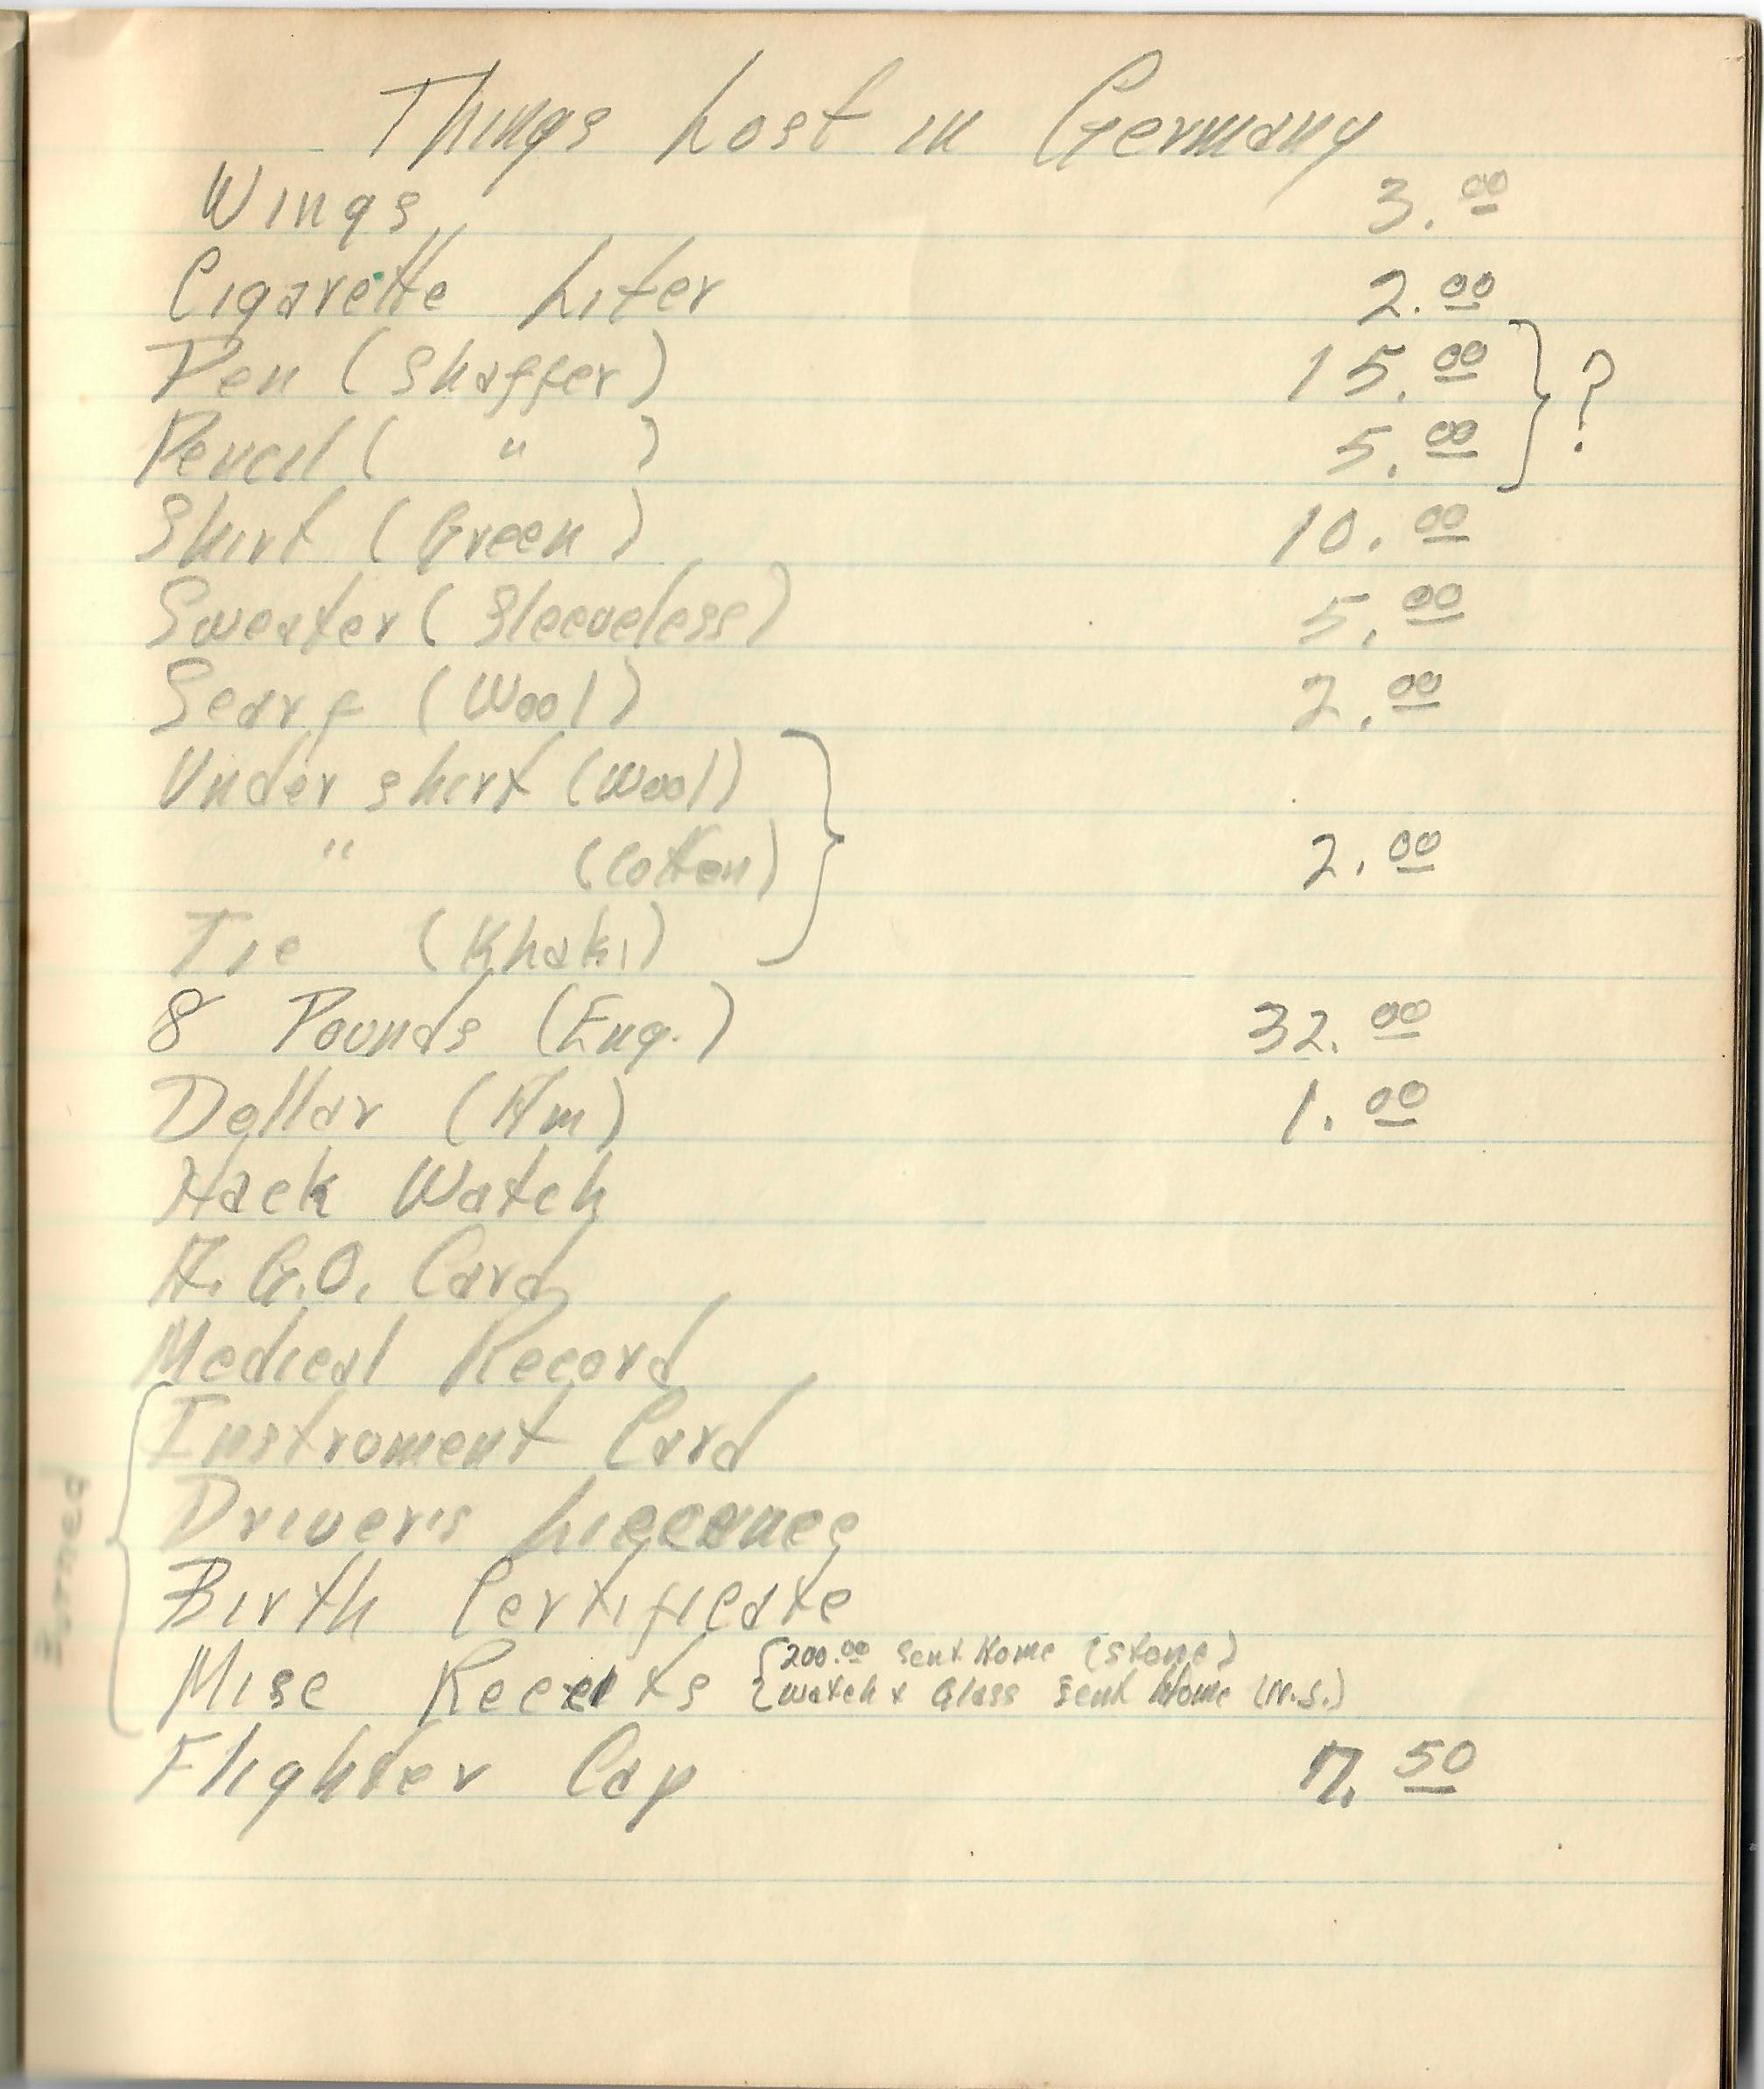 Things Lost in Germany
Wings 3.00
Cigarette Liter 2.00
Pen (Shaffer) 15.00 } ?
Pencil ( " ) 5.00
Shirt (Green) 10.00
Sweater (Sleeveless) 5.00
Scarf (Wool) 2.00
Under shirt (Wool)
" (Cotten) } 2.00
Tie (Khaki)
8 Pounds (Eng.) 32.00
Dollar (Am) 1.00
Hack Watch
A.G.O. Card
Medical Record
Burned { Instroment Card
Driver's
Birth Certificate
Misc { 200.00 Sent Home (Stone)
Watch + Glass Sent Home (N.S.)
Flighter Cap 7.50